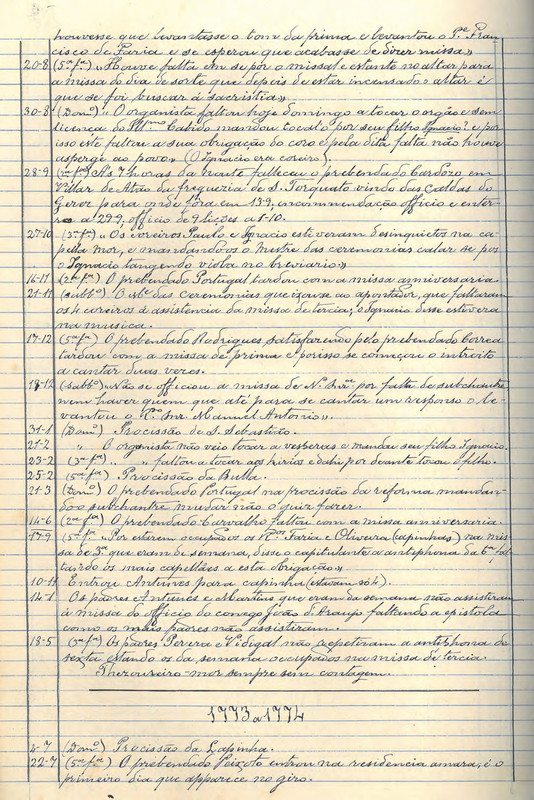 houvesse que levantasse o tom da prima e levantou o Pe Fran-
cisco de Faria e se esperou que acabasse de dizer missa»
20-8 (5ª fª) «Houve falta em se por o missal e estante no altar para
a missa do dia de sorte que depois de estar incensado o altar é
que se foi buscar á sacristia»
30-8 (Domº) «O organista faltou hoje domingo a tocar o orgão e sem
licença do Cabido mandou tocal-o por seu filho Ignacio? e por
isso este faltou a sua obrigação do coro e pela dita falta não houve
asperge ao povo» (O Ignacio era coreiro).
28-9 A's 7 horas da noute falleceu o prebendado Cardozo em
Villar de Atão da freguezia de S. Torquato vindo das Caldas do
Gerez para onde fôra em 13-9, encommendação officio e enter-
ro a 29-9, officio de 9 lições a 1-10.
27-10 (3ª fª) «Os coreiros Paulo e Ignacio estiveram desinquietos na ca-
pella mor, e mandando-os o Mestre das ceremonias calar se pos
o Ignacio tangendo viola no breviario»
16-11 (2ª fª) O prebendado Portugal tardou com a missa anniversaria.
21-11 (sabbº) O Me das Ceremonias que expuxe ao apontador, que faltaram
os 4 coreiros á assistencia da missa de tercia; o Ignacio disse estivera
na musica.
17-12 (5ª fª) O prebendado Rodrigues satisfazendo pelo prebendado Correa
tardou com a missa de prima e porisso se começou o introito
a cantar duas vezes.
18-12 (sabbº) «Não se officiou a missa de N. Snrª por falta de subchantre
nem haver quem até para se cantar um responso o le-
vantou o Snr Manuel Antonio».
31-1 (Domº) Procissão de S. Sebastião.
21-2 " O organista não veio tocar a vesperas e mandou seu filho Ignacio.
23-2 (3ª fª) " faltou a tocar aos kirios e dahi por deante tocou o filho.
25-2 (5ª fª) Procissão da Bulla.
21-3 (Domº) O prebendado Portugal na procissão da reforma mandan-
do-o subchantre mudar não o quiz fazer.
14-6 (2ª fª) O prebendado Carvalho faltou com a missa anniversaria.
17-9 (5ª fª) «Por estarem occupados os Faria e Oliveira (capinhas) na mis-
sa de 3ª que eram de semana, disse o capitulante a antiphona da 6ª fal-
tando os mais capellães a esta obrigação»
10-11 Entrou Antunes para capinha (estavam só 4).
14-1 Os padres Antunes e Martins que eram da semana não assistiram
á missa do officio do conego João d'Araujo faltando a epistola
como os mais padres não assistiram.
18-5 (3ª fª) Os padres Pereira e Vidigal não repetiram a antiphona de
sexta estando os da semana occupados na missa de tercia.
Thezoureiro-mor sempre sem contagem.
1773 a 1774
4-7 (Domº) Procissão da Lapinha.
22-7 (5ª fª) O prebendado Peixoto entrou na residencia amara; é o
primeiro dia que apparece no giro.